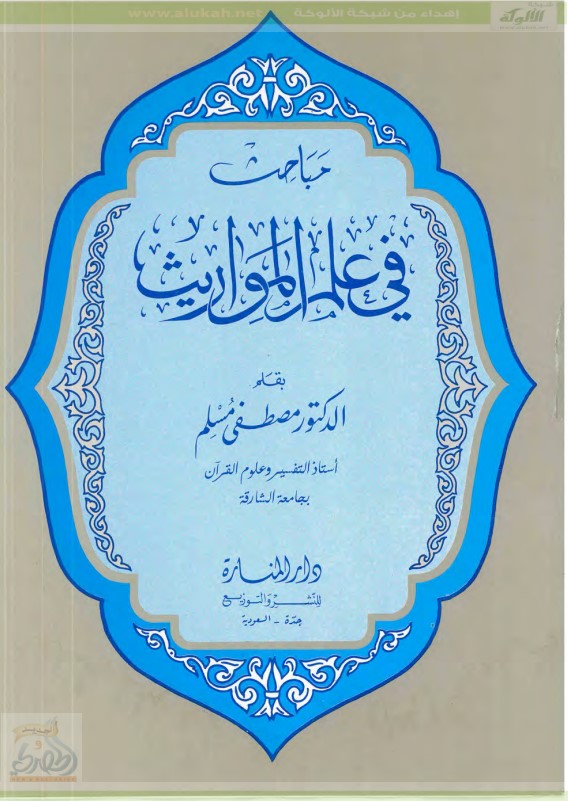 إهداء من شبكة الألوكة www.alukah.net
الألوكة
مباحث
في علم المواريث
بقلم
الدكتور مصطفى مسلم
أستاذ التفسير وعلوم القرآن
بجامعة الشارقة
دار المنارة
للنشر والتوزيع
جدة - السعودية